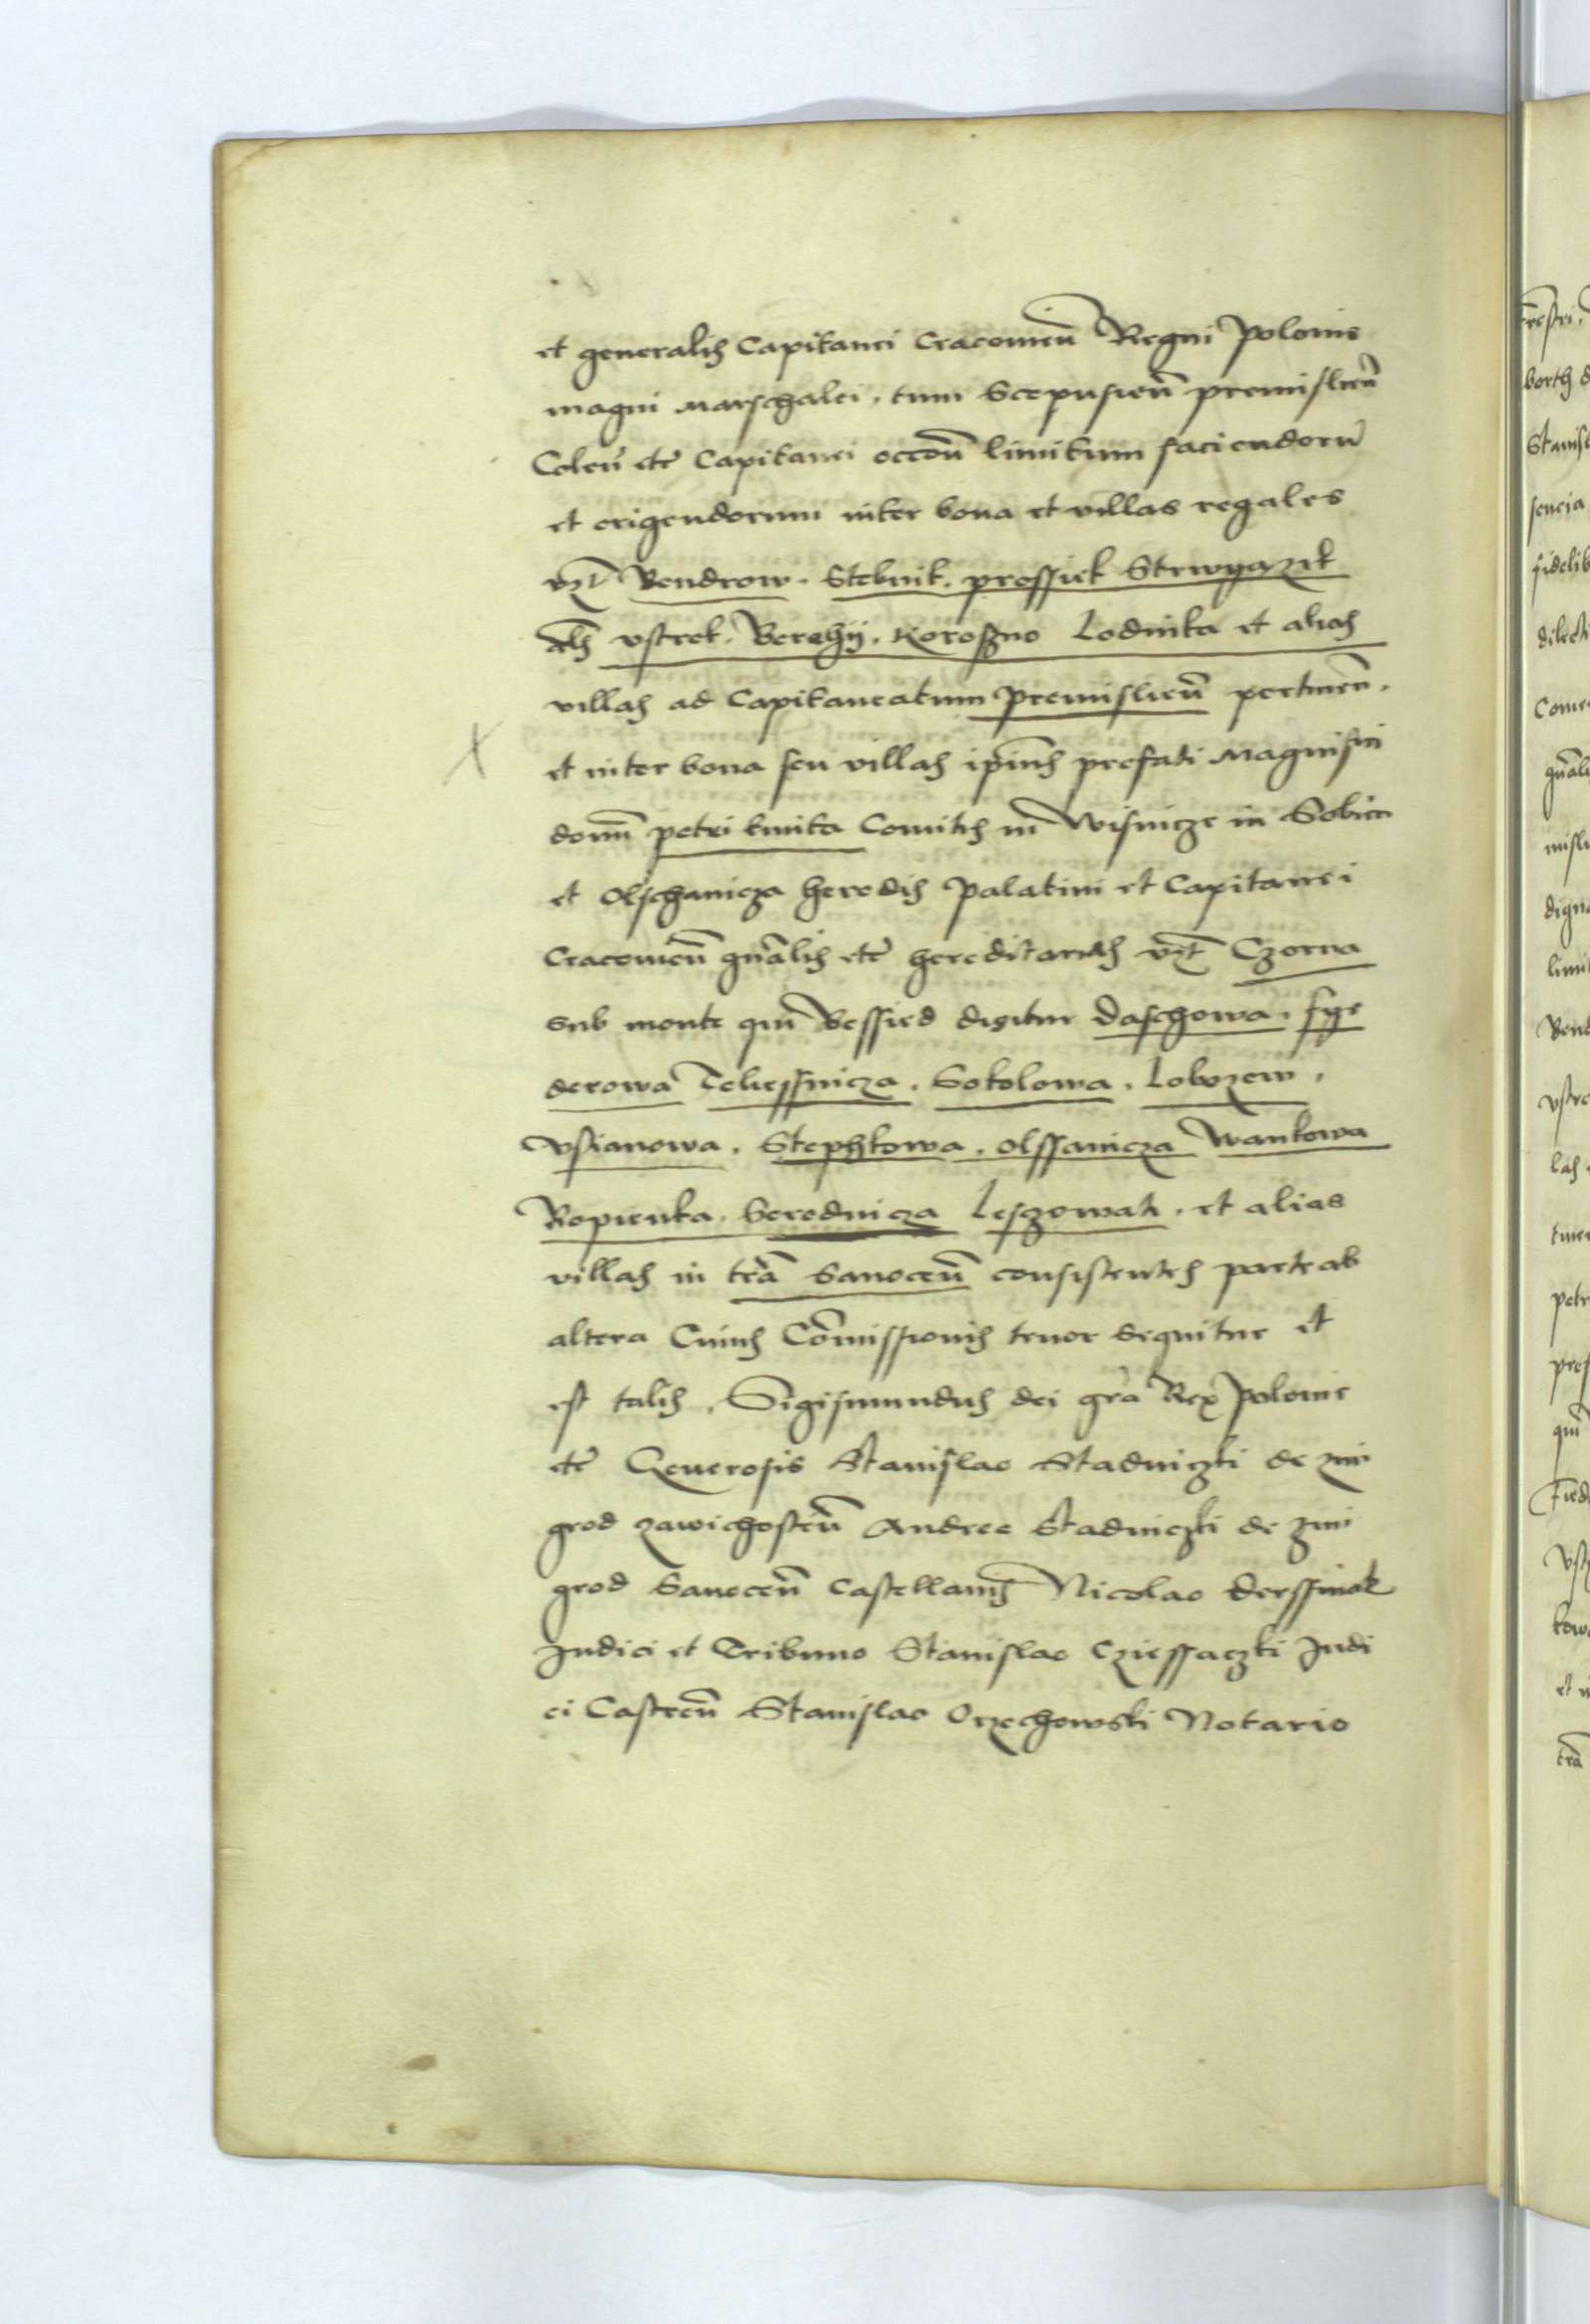 et generalis Capitanei Cracouien̄ Regni Polonie
magni Marschalci, tum Scepusien̄ premislien̄
Colen̄ etc̄ Capitanei occōn̄ limitum faciendorū
et erigendorum inter bona et villas regales
vzt̄ Bendrow. Stebnik. prossiek Strwyazek
als vstrek. Berehy. Koroszno Lodinka et alias
villas ad Capitaneatum Premislien̄ pertinen̄.
et inter bona seu villas ip̄ius prefati Magnifici
domī petri kmita Comitis in Wisnicze in Sobien
et Olschanicza heredis Palatini et Capitanei
Cracouien̄ gn̄alis etc̄ hereditarias vzt̄ Czorna
sub monte qui Bessied dicitur Daschowa. fye
derowa Telessnicza. Sokolowa. Lobozew.
Vstianowa. Stephkowa. olssanicza Wankowa
Ropienka. Serednicza Leszowati. et alias
villas in trā Sanocen̄ consistentes parte ab
altera Cuius Cōmissionis tenor sequitur et
est talis. Sigismundus dei grā Rex Polonie
etc̄ Generosis Stanislao Stadniczki de zmi
grod zawichosten̄ Andree Stadniczki de zmi
grod Sanocen̄ Castellanis Nicolao derssniak
Iudici et Tribuno Stanislao Cziessaczki Iudi
ci Castren̄ Stanislao Orzechowski Notario